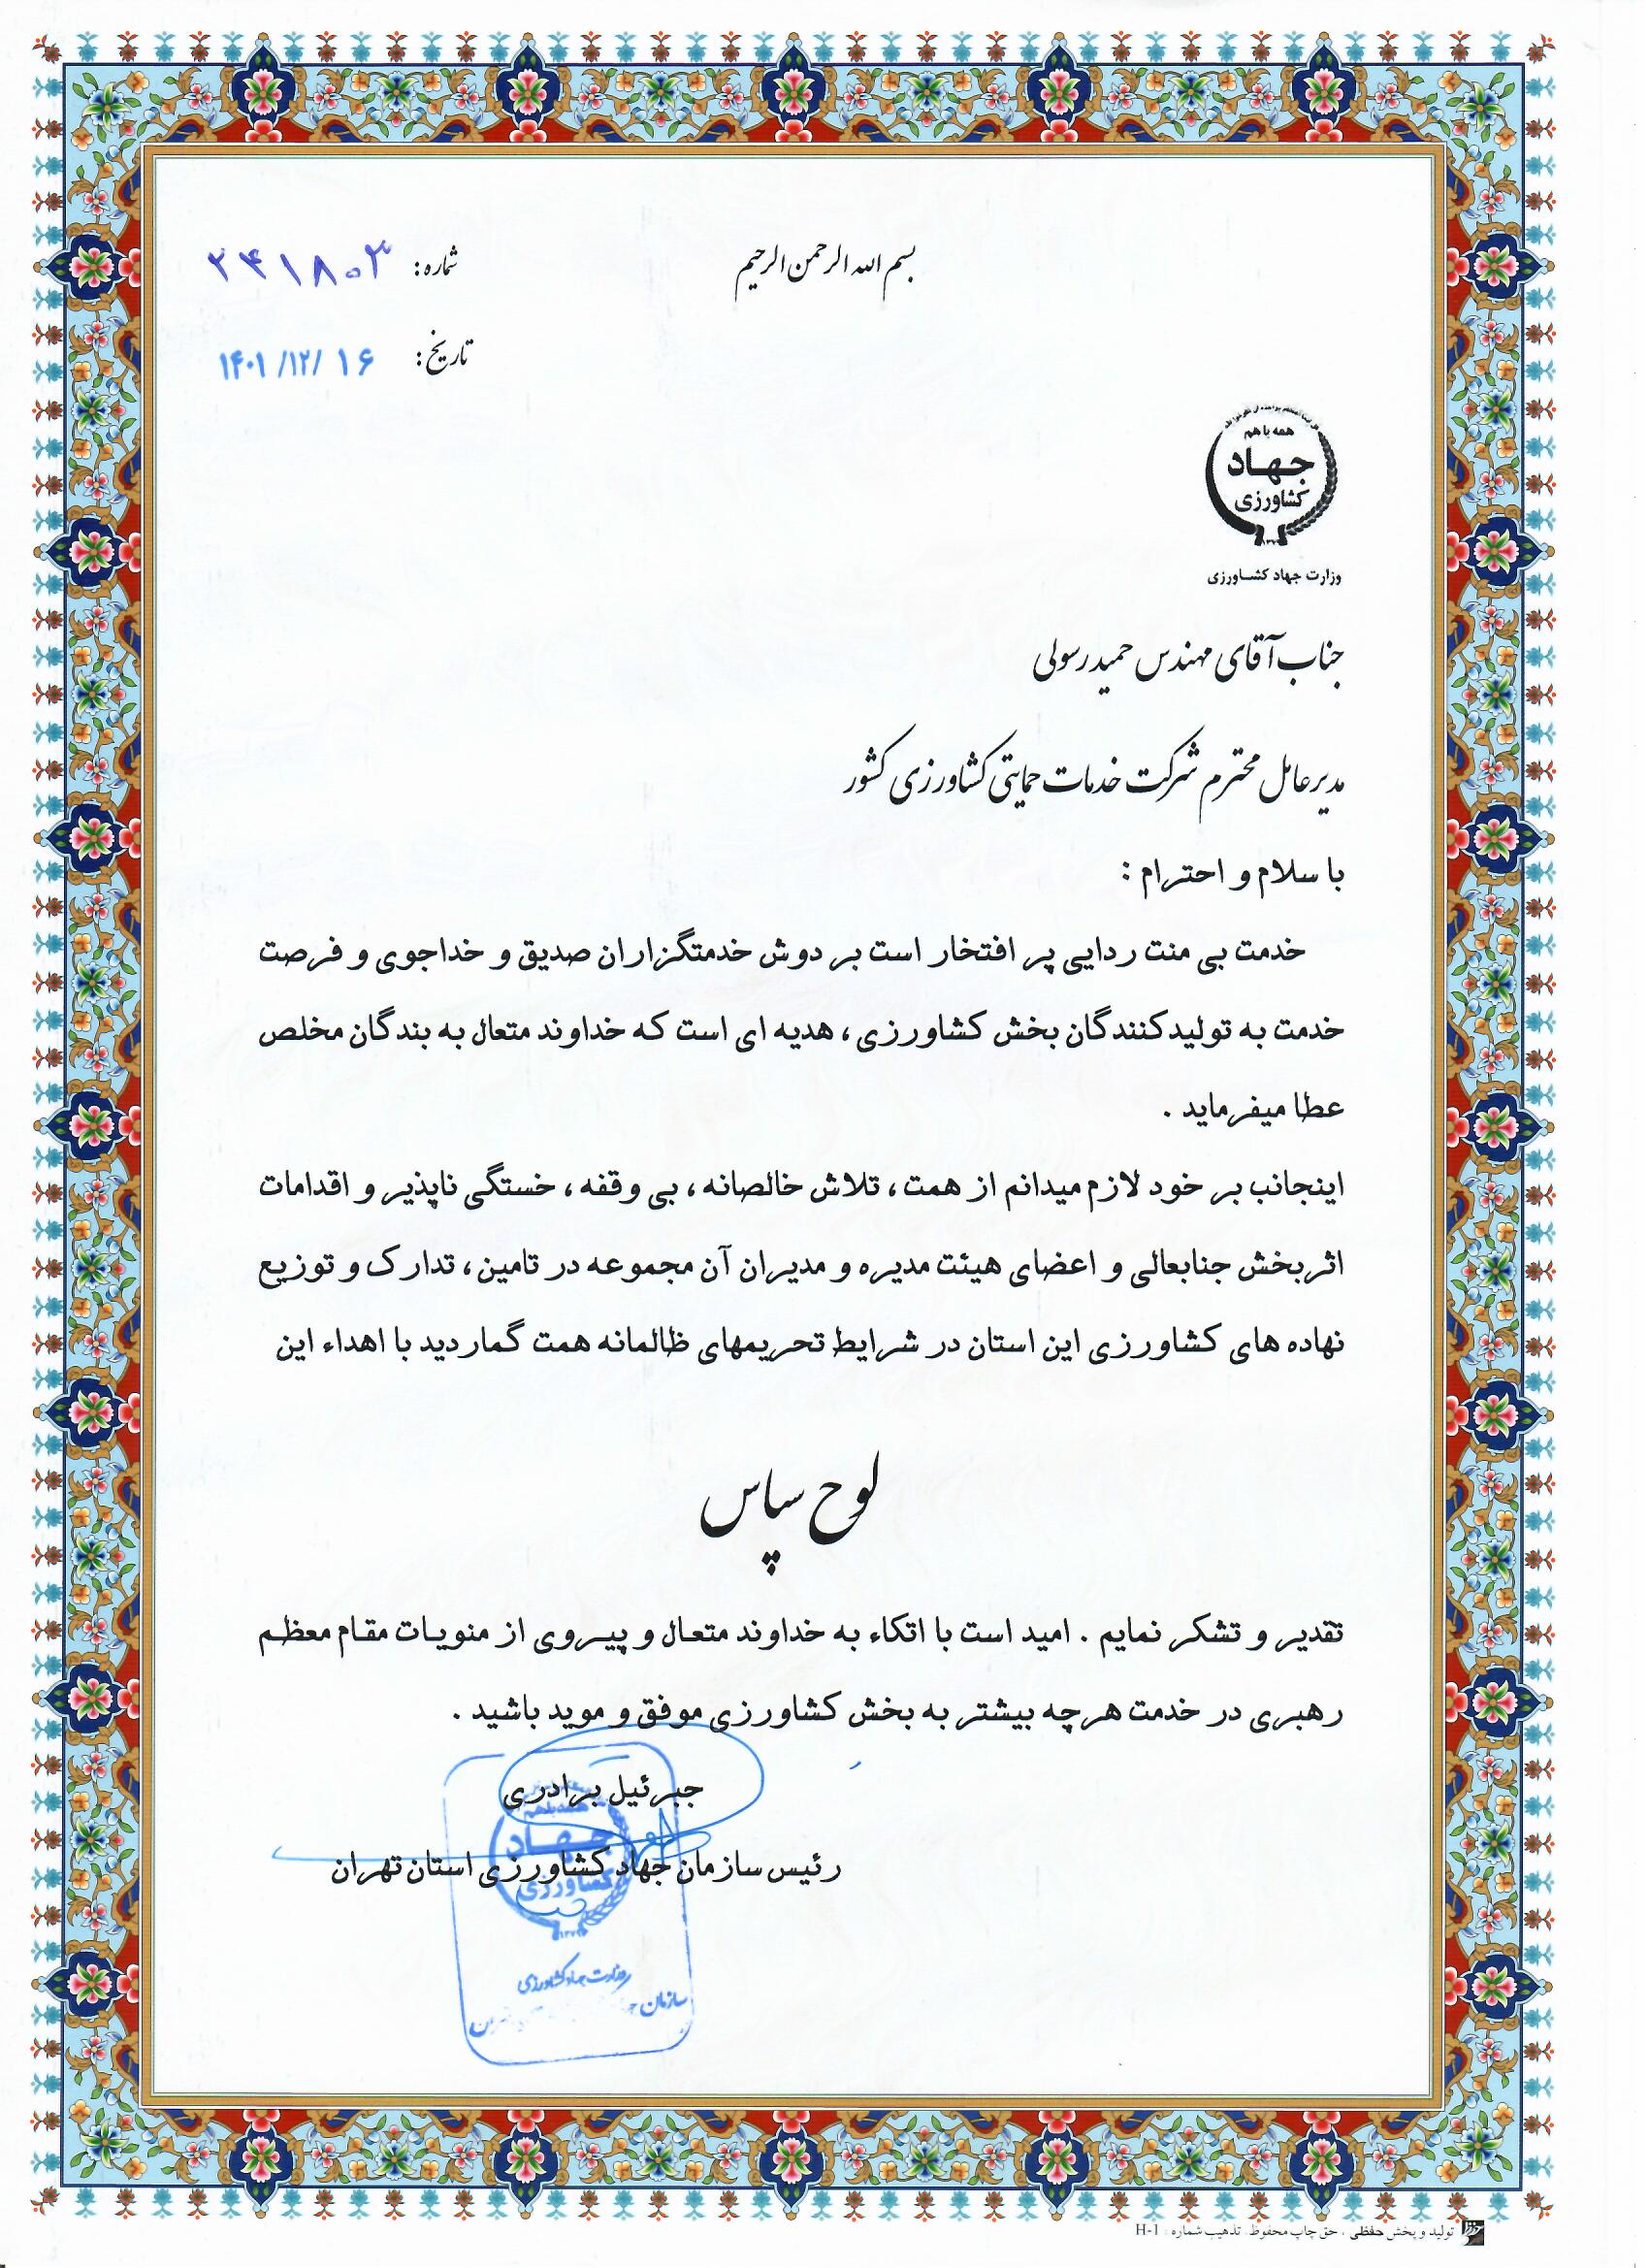 بسم الله الرحمن الرحیم
شماره: ۲۴۱۸۰۳
تاریخ: ۱۴۰۱/۱۲/۱۶
همه با هم
جهاد
کشاورزی
وزارت جهاد کشاورزی
جناب آقای مهندس حمید رسولی
مدیر عامل محترم شرکت خدمات حمایتی کشاورزی کشور
با سلام و احترام :
خدمت بی منت ردایی پر افتخار است بر دوش خدمتگزاران صدیق و خداجوی و فرصت
خدمت به تولیدکنندگان بخش کشاورزی ، هدیه ای است که خداوند متعال به بندگان مخلص
عطا میفرماید .
اینجانب بر خود لازم میدانم از همت ، تلاش خالصانه ، بی وقفه ، خستگی ناپذیر و اقدامات
اثربخش جنابعالی و اعضای هیئت مدیره و مدیران آن مجموعه در تامین ، تدارک و توزیع
نهاده های کشاورزی این استان در شرایط تحریمهای ظالمانه همت گماردید با اهداء این
لوح سپاس
تقدیر و تشکر نمایم . امید است با اتکاء به خداوند متعال و پیروی از منویات مقام معظم
رهبری در خدمت هرچه بیشتر به بخش کشاورزی موفق و موید باشید .
جبرئیل برادری
رئیس سازمان جهاد کشاورزی استان تهران
همه با هم
جهاد
کشاورزی
وزارت جهاد کشاورزی
سازمان
تولید و پخش حفظی ، حق چاپ محفوظ . تذهیب شماره : H-1